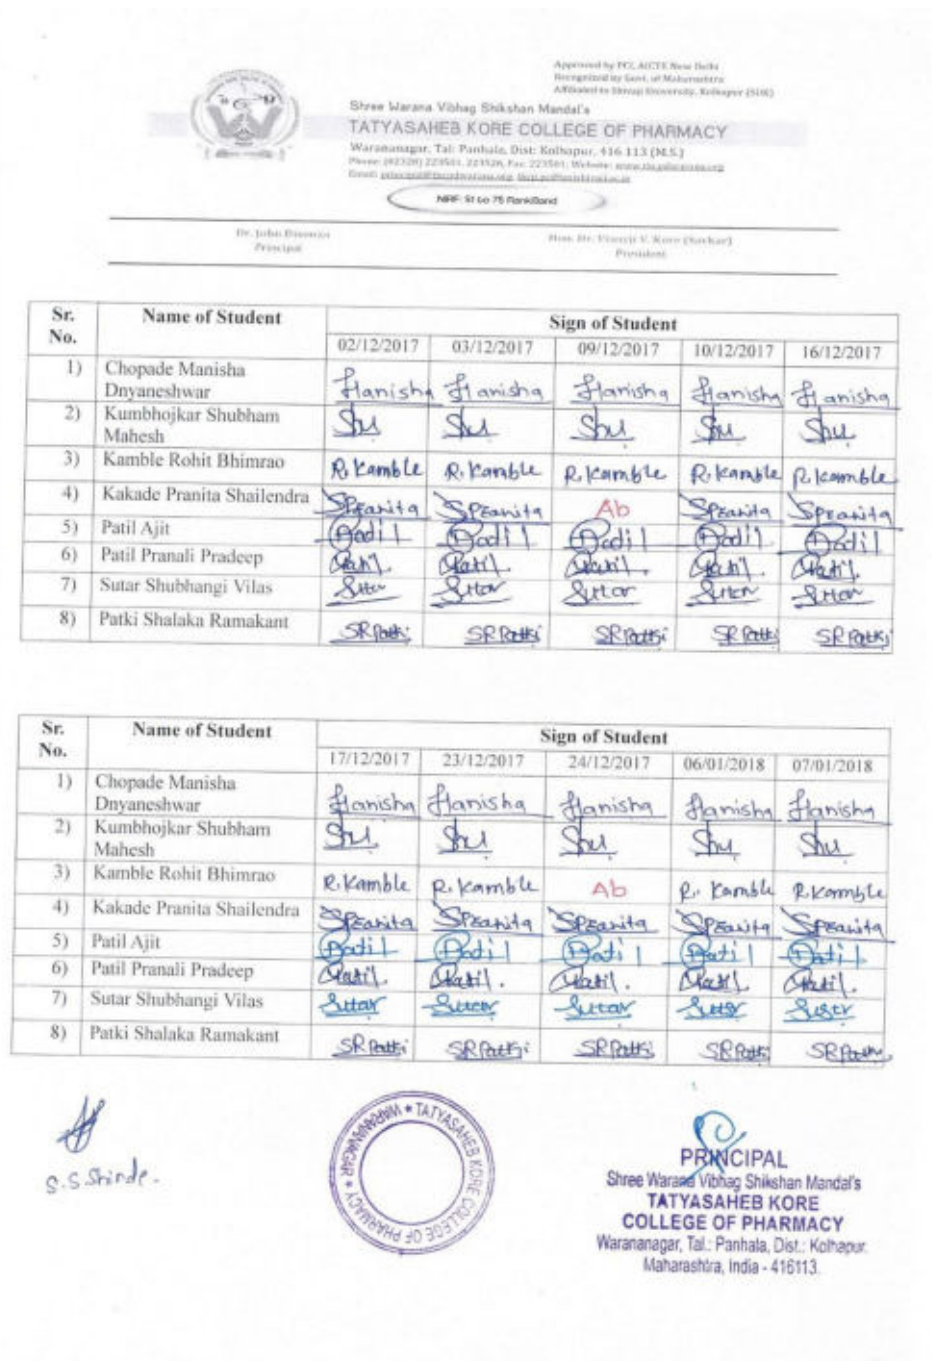 Approved by PCI, AICTE New Delhi
Recognized by Govt. of Maharashtra
Affiliated to Shivaji University, Kolhapur (SUK)
Shree Warana Vibhag Shikshan Mandal's
TATYASAHEB KORE COLLEGE OF PHARMACY
Warananagar, Tal: Panhala, Dist: Kolhapur, 416 113 (M.S.)
NIRF: 51 to 75 RankBand
Principal
President
Sr. No. Name of Student Sign of Student
02/12/2017 03/12/2017 09/12/2017 10/12/2017 16/12/2017
1) Chopade Manisha Dnyaneshwar Manisha Manisha Manisha Manisha Manisha
2) Kumbhojkar Shubham Mahesh Shu Shu Shu Shu Shu
3) Kamble Rohit Bhimrao R. Kamble R. Kamble R. Kamble R. Kamble R. Kamble
4) Kakade Pranita Shailendra SPranita SPranita Ab SPranita SPranita
5) Patil Ajit Patil Patil Patil Patil Patil
6) Patil Pranali Pradeep Patil. Patil. Patil. Patil. Patil.
7) Sutar Shubhangi Vilas Sutar Sutar Sutar Sutar Sutar
8) Patki Shalaka Ramakant SRPatki SRPatki SRPatki SRPatki SRPatki
Sr. No. Name of Student Sign of Student
17/12/2017 23/12/2017 24/12/2017 06/01/2018 07/01/2018
1) Chopade Manisha Dnyaneshwar Manisha Manisha Manisha Manisha Manisha
2) Kumbhojkar Shubham Mahesh Shu Shu Shu Shu Shu
3) Kamble Rohit Bhimrao R. Kamble R. Kamble Ab R. Kamble R. Kamble
4) Kakade Pranita Shailendra SPranita SPranita SPranita SPranita SPranita
5) Patil Ajit Patil Patil Patil Patil Patil
6) Patil Pranali Pradeep Patil. Patil. Patil. Patil. Patil.
7) Sutar Shubhangi Vilas Sutar Sutar Sutar Sutar Sutar
8) Patki Shalaka Ramakant SRPatki SRPatki SRPatki SRPatki SRPatki
S.S. Shinde.
TATYASAHEB KORE COLLEGE OF PHARMACY ★ WARANANAGAR ★
PRINCIPAL
Shree Warana Vibhag Shikshan Mandal's
TATYASAHEB KORE
COLLEGE OF PHARMACY
Warananagar, Tal.: Panhala, Dist.: Kolhapur.
Maharashtra, India - 416113.